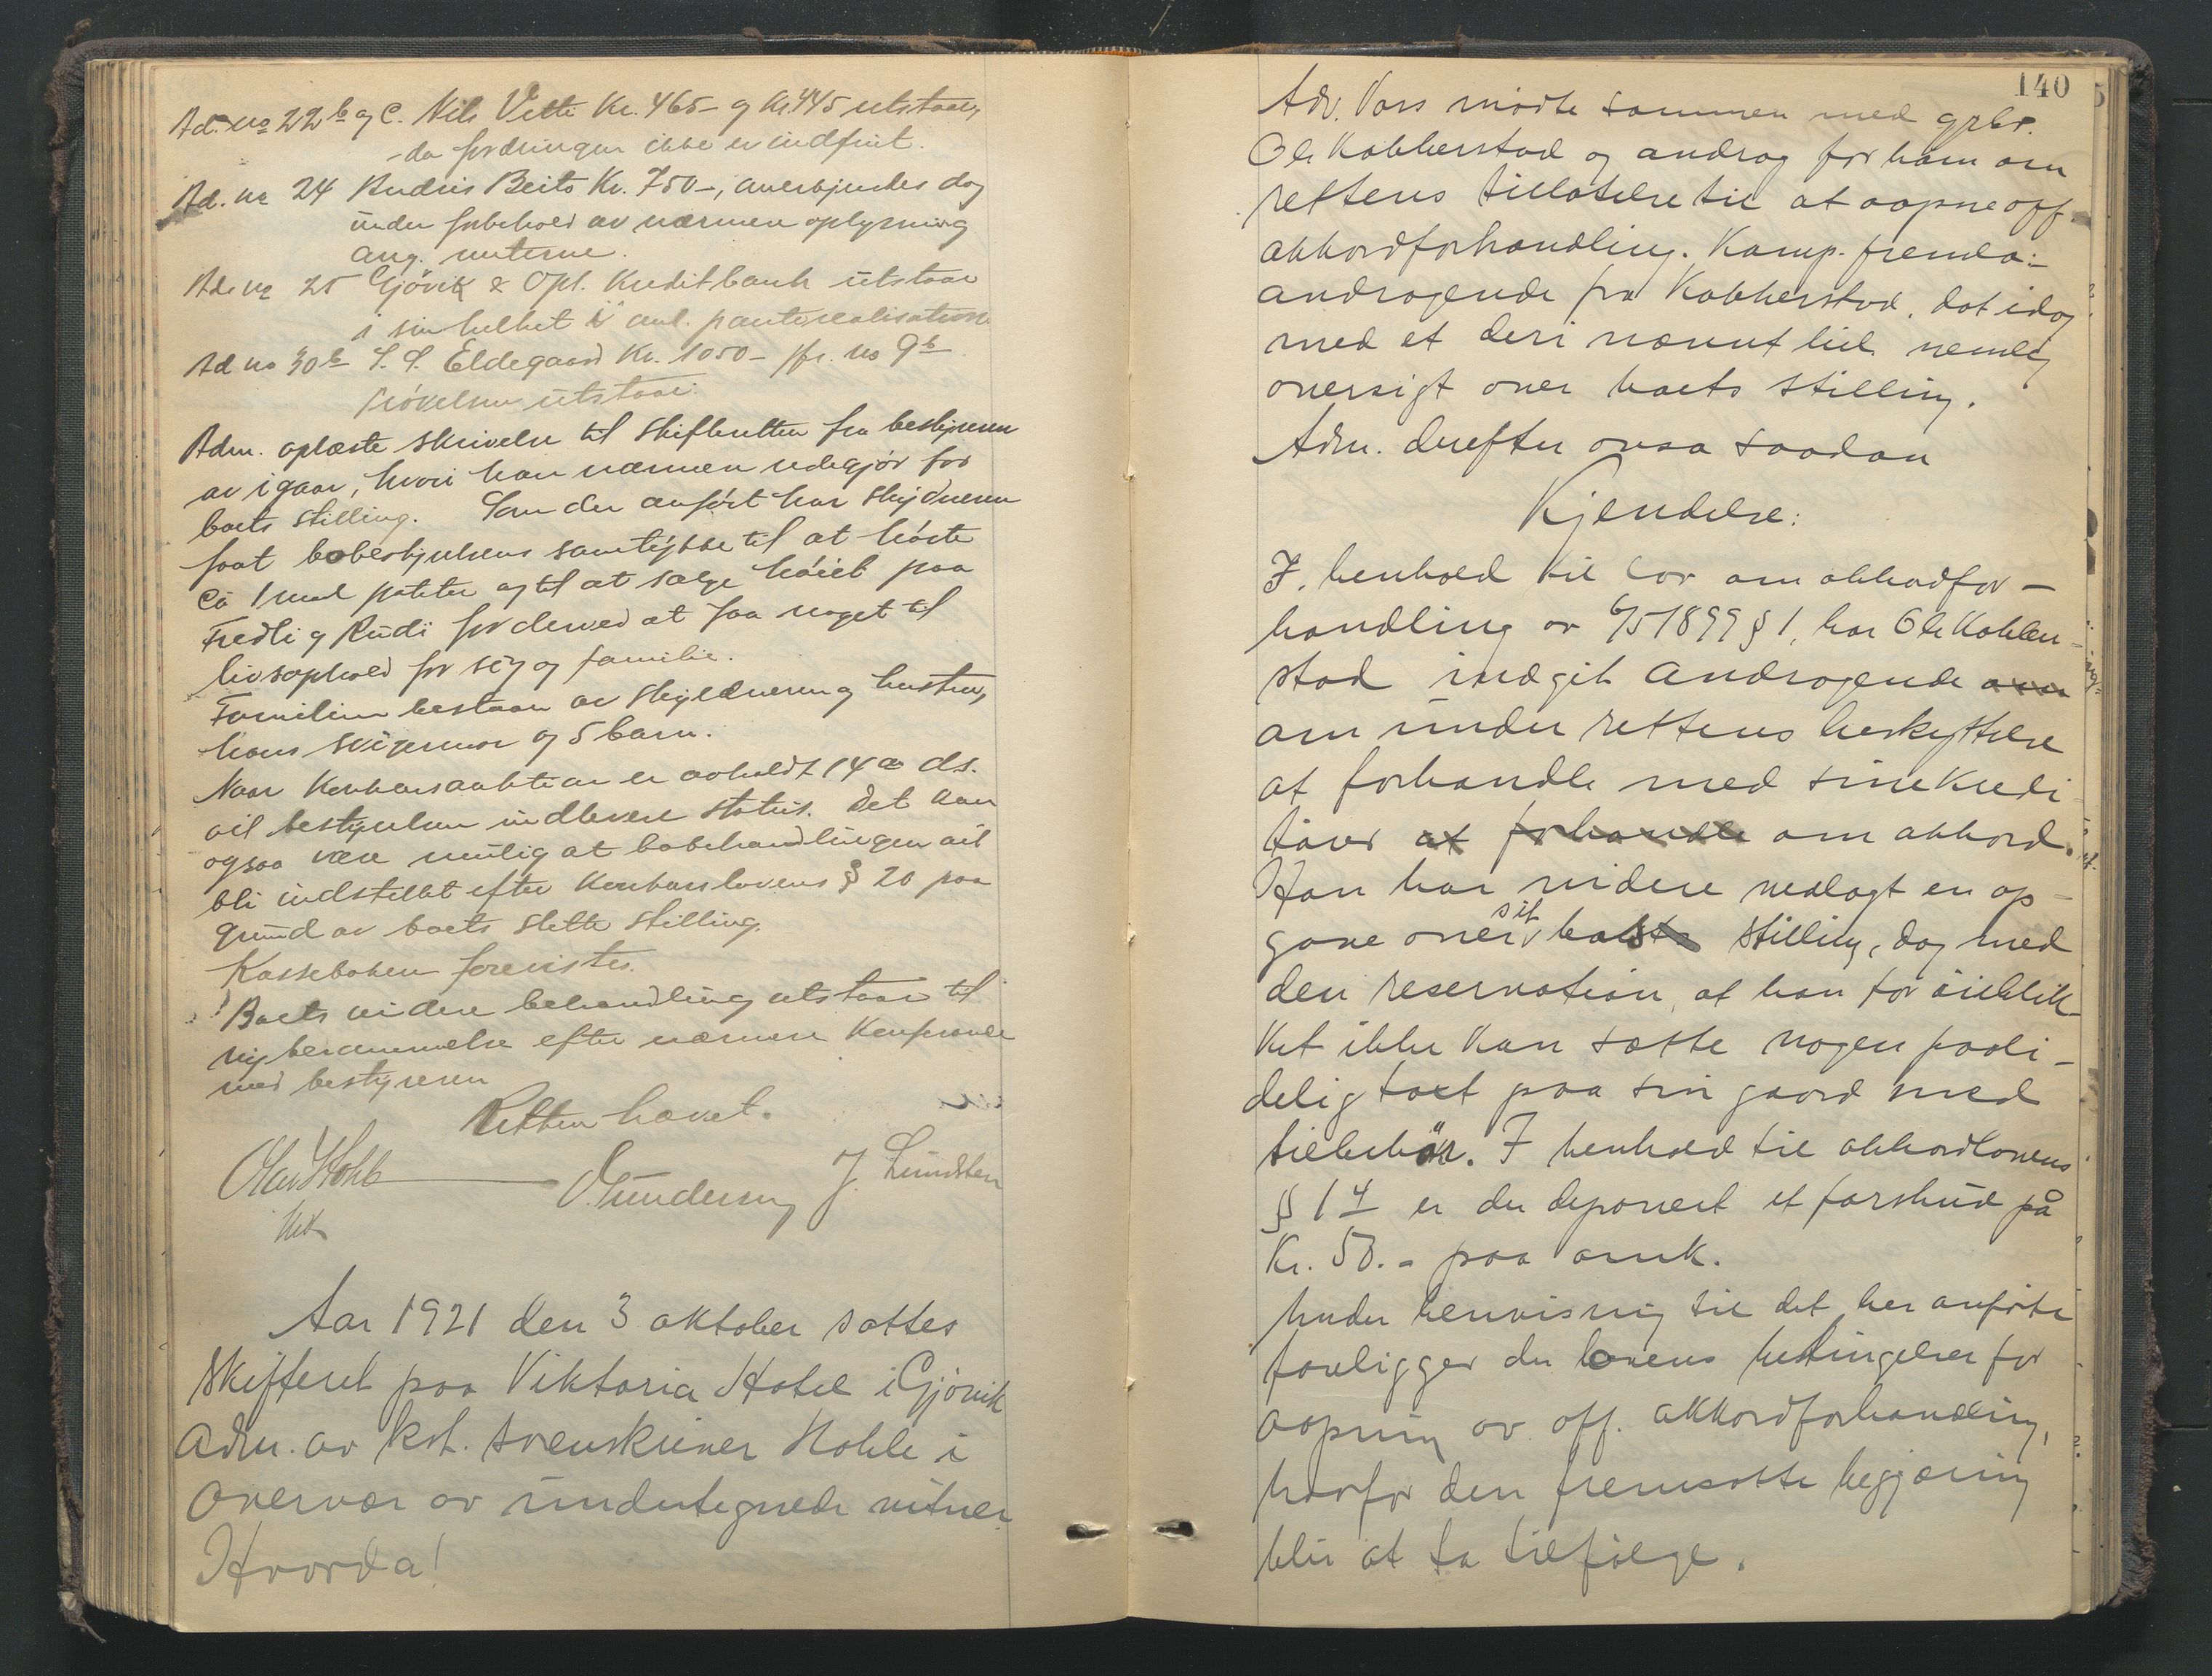 Ad. no 22 b og c. Nils Vetti Kr. 465- og Kr. 445 utstaar,
da fordringen ikke er indfriet.
Ad. no 24 Andris Beito Kr. 750-, anerkjendes dog
under forbehold av nærmere oplysning
ang. renterne.
Ad. no 25 Gjövik & Opl. Kreditbank utstaar
i sin helhet i anl. panterealisation
Ad no 30 b Eldegaard Kr. 1050- jfr. no 9 b
Prövelsen utstaar.
Adm. oplæste skrivelse til skifteretten fra bestyreren
av igaar, hvori han nærmere redegjör for
boets stilling. Som der anfört har skyldneren
faat bobestyrelsens samtykke til at höste
ca 1 maal poteter og til at sælge höiet paa
Fredli og Rudi for derved at faa noget til
livsophold for sig og familie.
Familien bestaar av skyldneren og hustru,
hans svigermor og 5 barn.
Naar Konkursauktion er avholdt 14 de ds.
vil bestyrelsen indlevere status. Det kan
ogsaa være mulig at bobehandlingen vil
bli indstillet efter Konkurslovens § 20 paa
grund av boets slette stilling.
Kasseboken forevistes.
Boets videre behandling utstaar til
ny berammelse efter nærmere Konferanse
med bestyreren
Retten hævet.
Olav Hohle O. Gundersen J. Lundsten
Aar 1921 den 3 oktober sattes
Skifteret paa Viktoria Hotel i Gjövik
Adm. av kst. svenskriver Hohle i
Overvær av undertegnede vitner.
Hvorda!
140
Adv. Voss mödte sammen med grbr.
Ole Kobberstad og androg for ham om
rettens tillatelse til at aapne off.
akkordforhandling. Komp. fremla:
andragende fra Kobberstad. dat idag
med et deri nævnt bil. nemlig
oversigt over boets stilling.
Adm. derefter avsa saadan
Kjendelse:
I. henhold til lov om akkordfor-
handling av 6/5 1899 § 1, har Ole Kobber-
stad indgit andragende om
om under rettens beskyttelse
at forhandle med sine Kredi
torer at forhandle om akkord.
Han har videre nedlagt en op-
gave over sit boets stilling, dog med
den reservation, at han for öieblik-
ket ikke kan sætte nogen paali-
delig takst paa sin gaard med
tilbehör. I henhold til akkordlovens
§ 14 er der deponert et forskud på
Kr. 50.- paa omk.
Under henvisning til det her anförte
foreligger der lovens betingelser for
aapning av off. akkordforhandling,
hvorfor den fremsatte begjæring
blir at ta tilfölge.